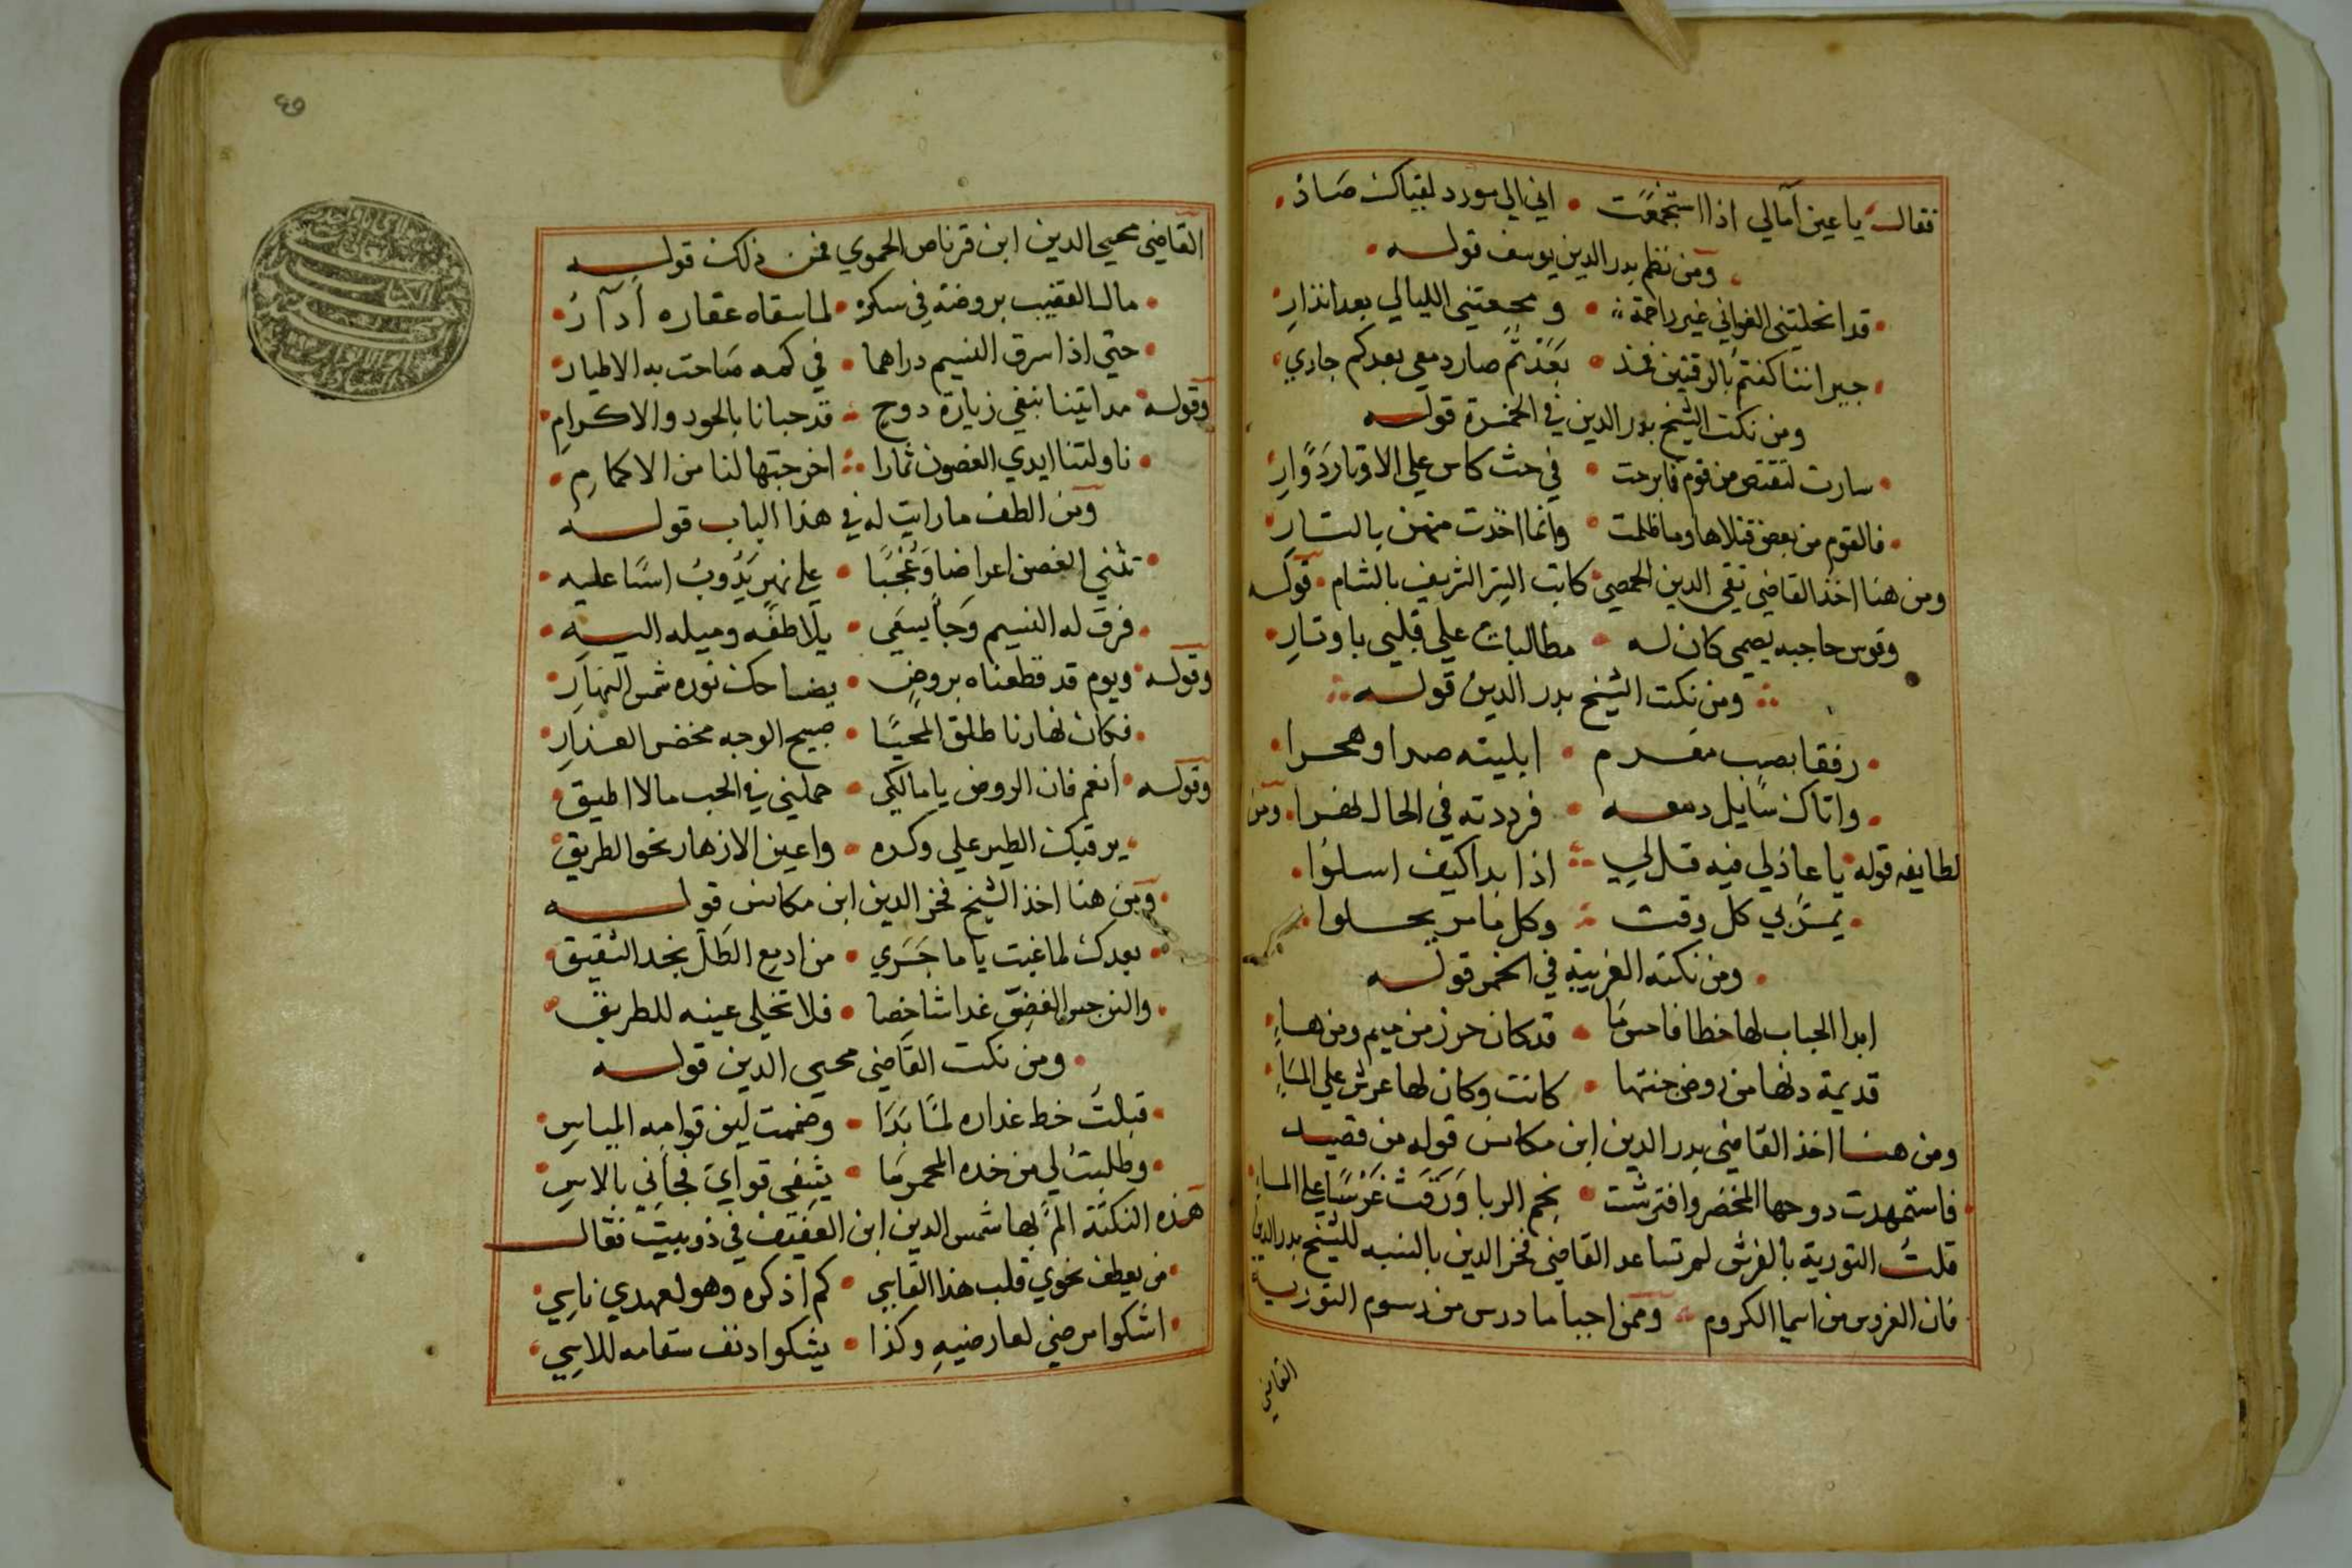 فقال يا عين آمالي اذا استجمعت • اني الي مورد لقياك صاد •
ومن نظم بدر الدين يوسف قوله •
• قد انحلتني الغواني غير راحمة • و محعتني الليالي بعد انذار
• جيراننا كنتم بالرقتين فمذ • بعدتم صار دمعي بعدكم جاري
ومن نكت الشيخ بدر الدين في الخمرة قوله
• سارت لتقتص من قوم فما برحت • في حث كاس علي الاوتار دوار
• فالقوم من بعض قتلاها وما ظلمت • وانما اخذت منهن بالتار
ومن هنا اخذ القاضي تقي الدين الحمصي كاتب السر الشريف بالشام • قوله
وقوس حاجبه يصمي كان له • مطالبات علي قلبي باوتار •
ومن نكت الشيخ بدر الدين قوله
• رفقا بصب مغرم • ابليته صدا وهجرا •
• واتاك سايل دمعه • فرددته في الحال نهرا • ومن
لطايفه قوله يا عاذلي فيه قل لي • اذا بدا كيف اسلوا •
• يمر بي كل وقت • وكل ما مر يحلوا •
• ومن نكته الغريبة في الخمر قوله
ابدا الحباب لها خطا فاحسن ما • قد كان حرز من ميم ومن هاء
قديمة دنها من روض جنتها • كانت وكان لها عرش علي الماء
ومن هنا اخذ القاضي بدر الدين ابن مكانس قوله من قصيد
فاستمهدت دوحها المخضر وافترشت • نجم الربا ورقت عرشا علي الماء
قلت التورية بالفرش لم تساعد القاضي فخر الدين بالنسبه للشيخ بدر الدين
فان العروس من اسما الكروم • وممن احيا ما درس من رسوم التورية
القاضي
٤٦
القاضي محيي الدين ابن قرناص الحموي فمن ذلك قوله
• مال القضيب بروضة في سكره • لما سقاه عقاره آدار •
• حتي اذا سرق النسيم دراهما • في كمه صاحت به الاطيار
وقوله • مد اتينا نبغي زيارة دوح • قد حبانا بالجود والاكرام
• ناولتنا ايدي الغصون ثمارا • اخرجتها لنا من الاكمام •
ومن الطف ما رايت له في هذا الباب قوله
• تثني الغصن اعراضا وعجبا • علي نهر يذوب اسا عليه •
• فرق له النسيم وجا يسعي • يلاطفه وميله اليه •
وقوله • ويوم قد قطعناه بروض • يضاحك نوره شمس النهار
• فكان نهارنا طلق المحيا • صبيح الوجه مخضر العذار
وقوله • انعم فان الروض يا مالكي • حملني في الحب مالا اطيق
• يرقبك الطير علي وكره • واعين الازهار نحو الطريق
• ومن هنا اخذ الشيخ فخر الدين ابن مكانس قوله
• بعدك لما غبت يا ما جري • من ادمع الطل بخد الشقيق
• والنرجس الغض غدا شاخصا • فلا تخلي عينه للطريق
• ومن نكت القاضي محيي الدين قوله
• قبلت خط عداره لما بدا • وضممت لين قوامه المياس
• وطلبت لي من خده المحمر ما • يشفي قواي فجاني بالاس
هذه النكتة الم بها شمس الدين ابن العفيف في ذوبيت فقال
• من يعطف نحوي قلب هذا القاسي • كم اذكره وهو لعهدي ناسي
• اشكوا مرضي لعارضيه وكذا • يشكوا دنف سقامه للاسي